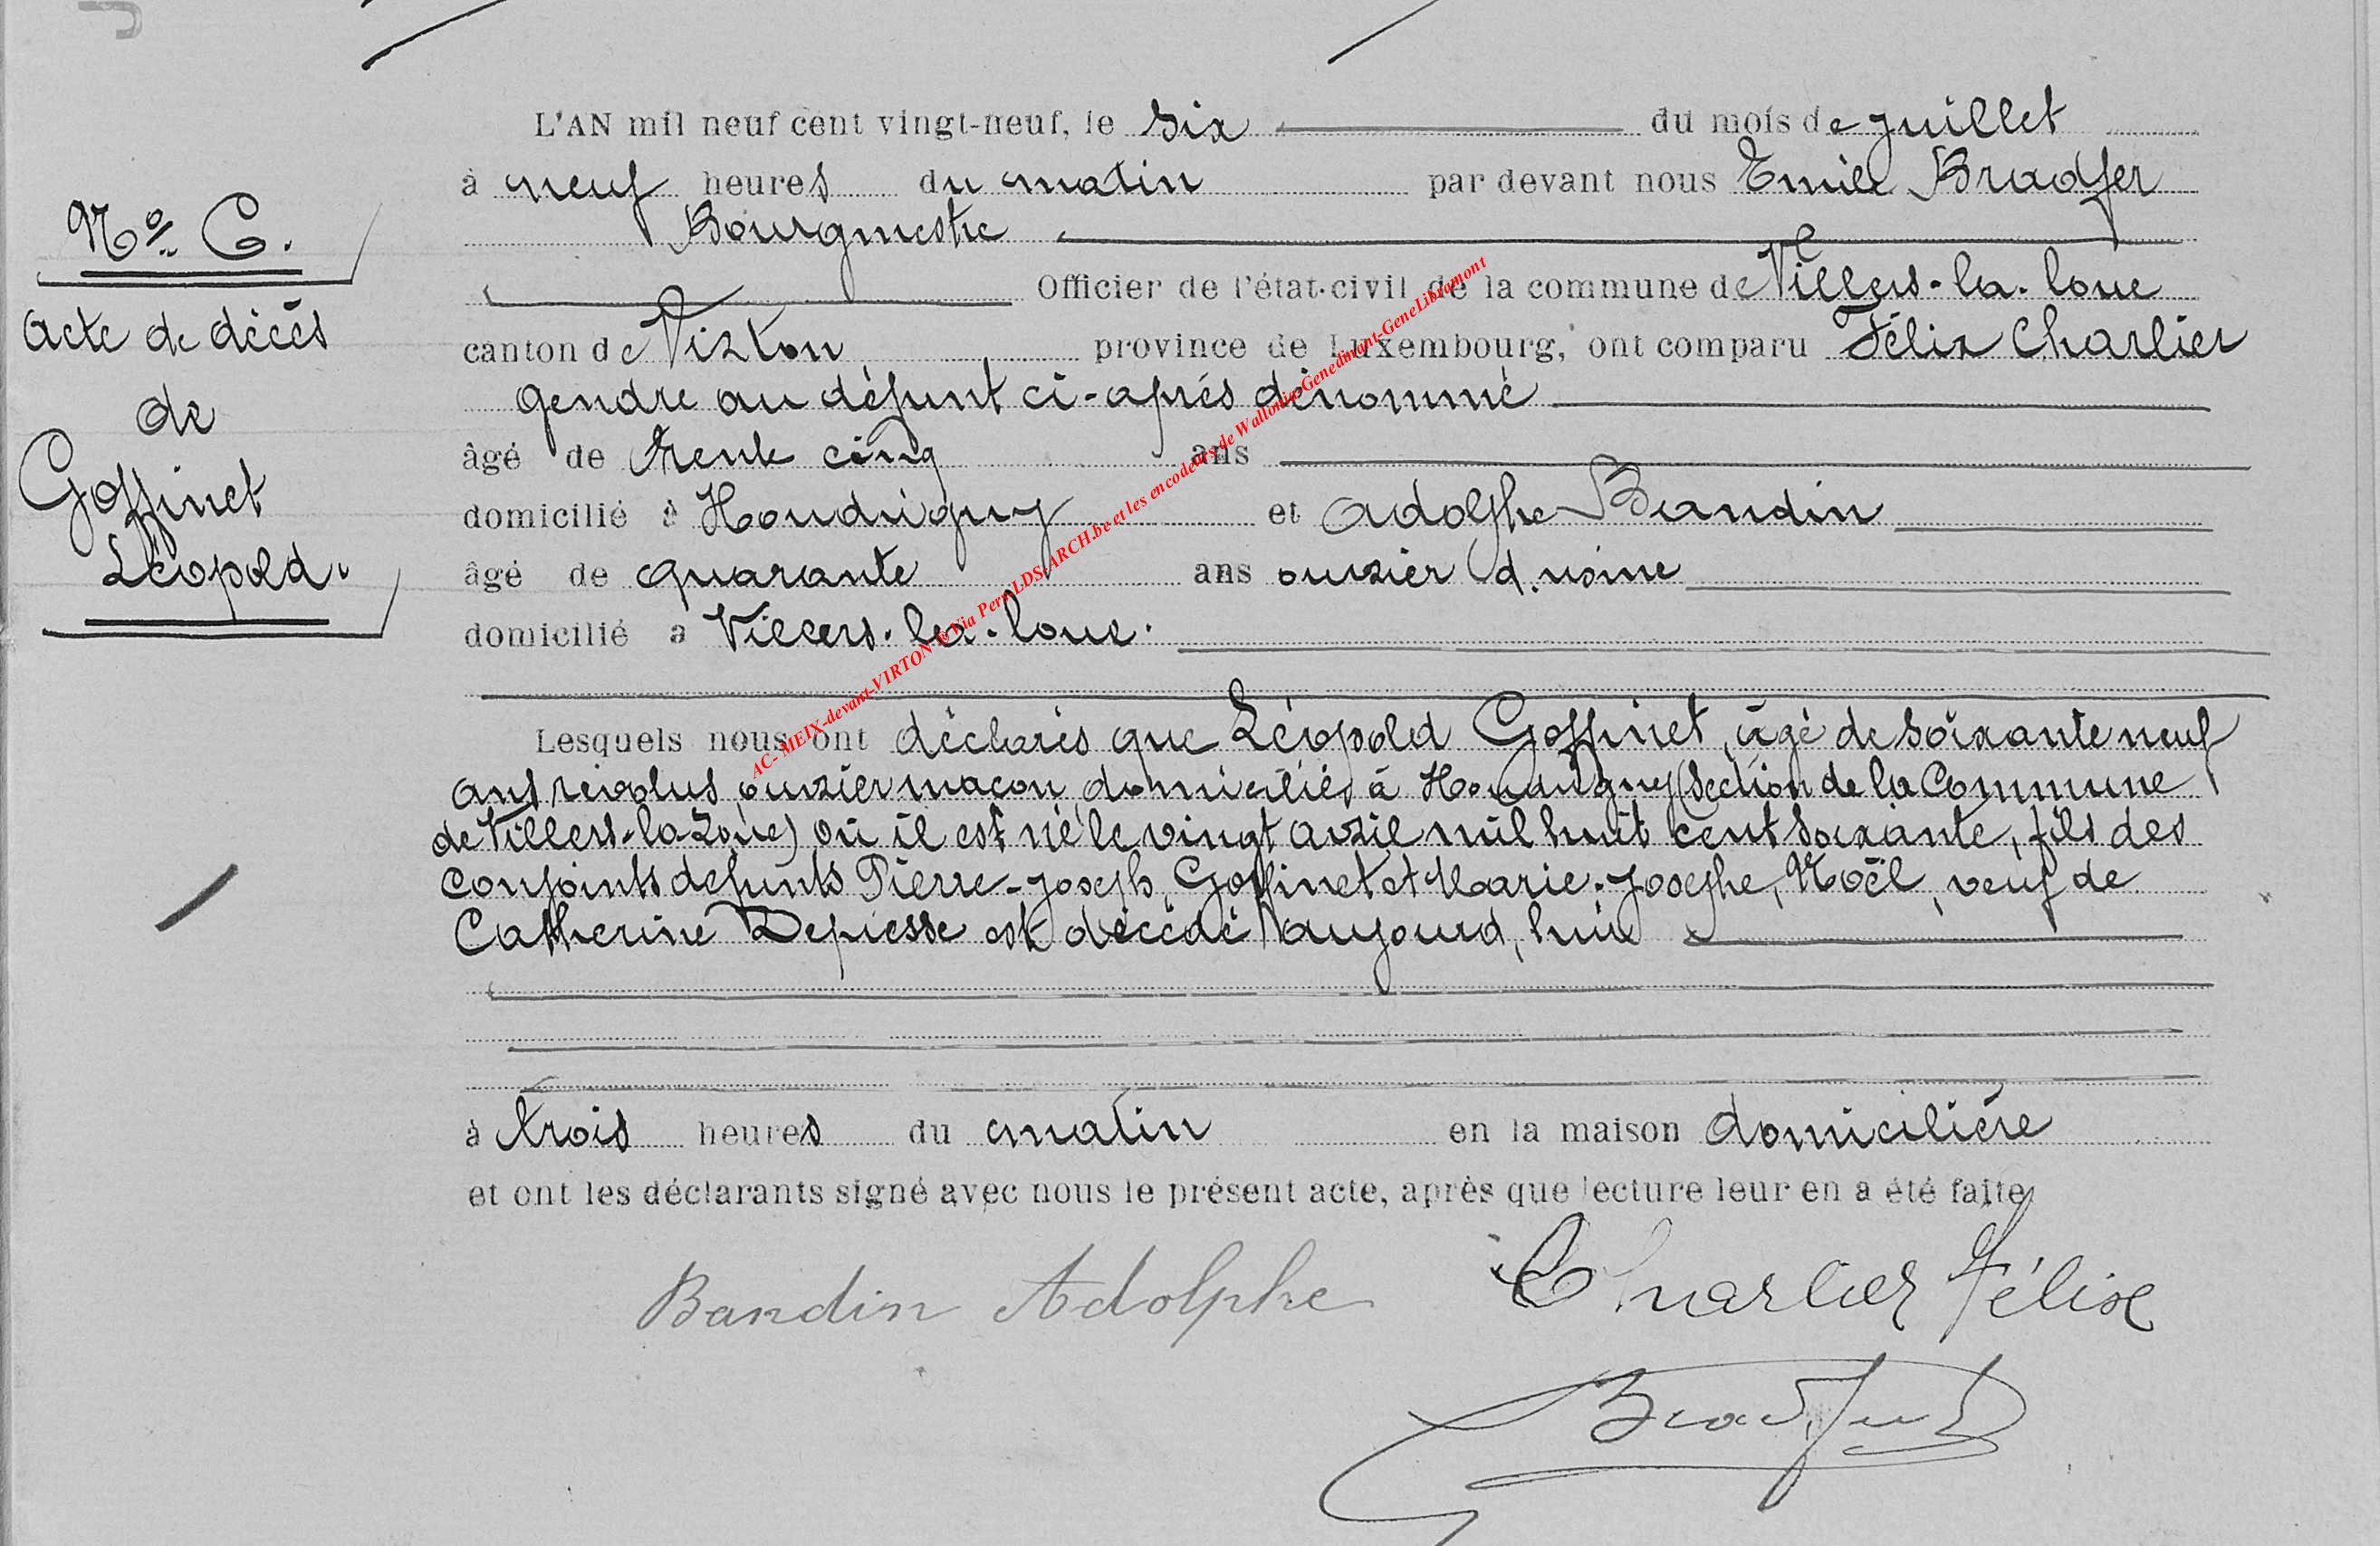 L'AN mil neuf cent vingt-neuf, le six du mois de juillet
à neuf heures du matin par devant nous Emile Bradfer
Bourgmestre
Officier de l'état-civil de la commune de Villers-la-loue
canton de Virton province de Luxembourg, ont comparu Félix Charlier
gendre au défunt ci-après dénommé
âgé de trente cinq ans
domicilié à Houdrigny et Adolphe Bandin
âgé de quarante ans ouvrier d'usine
domicilié à Villers-la-loue.
Lesquels nous ont déclarés que Léopold Goffinet, âgé de soixante neuf
ans révolus, ouvrier maçon, domicilié à Houdrigny (section de la Commune
de Villers-la-Loue) où il est né le vingt avril mil huit cent soixante, fils des
conjoints défunts Pierre-Joseph Goffinet et Marie-Josephe, Noël, veuf de
Catherine Depiesse est décédé aujourd'hui
à trois heures du matin en la maison domicilière
et ont les déclarants signé avec nous le présent acte, après que lecture leur en a été faite
Bandin Adolphe Charlier Félix
Bradfer
N° 6.
Acte de décès
de
Goffinet
Léopold.
AC-MEIX-devant-VIRTON © Via Pern LDS-ARCH.be et les encodeurs de Wallonie-Genedinant-GeneLibramont